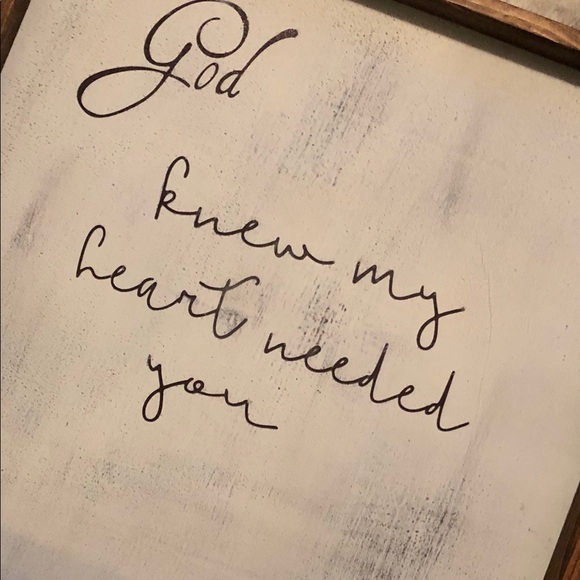 God
knew my
heart needed
you